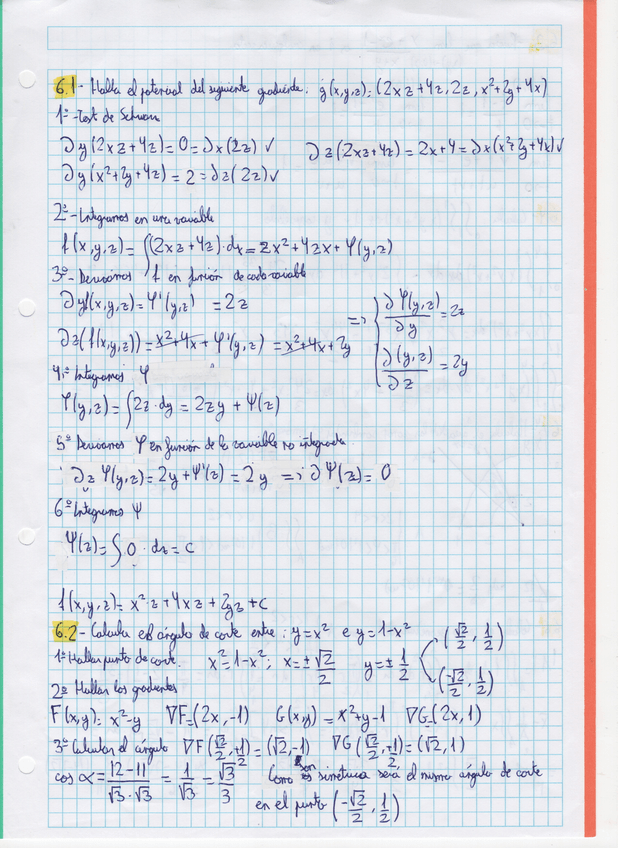 6.1- Halla el potencial del siguiente gradiente. g(x,y,z): (2xz+4z, 2z, x²+2y+4x)
1º- Test de Schwarz
∂y(2xz+4z)=0=∂x(2z)✓ ∂z(2xz+4z)=2x+4=∂x(x²+2y+4x)✓
∂y(x²+2y+4z)=2=∂z(2z)✓
2º- Integramos en una variable
f(x,y,z)=∫(2xz+4z)·dx=zx²+4zx+φ(y,z)
3º- Derivamos f en función de cada variable
∂yf(x,y,z)=φ'(y,z) =2z
∂z(f(x,y,z))=x²+4x+φ'(y,z)=x²+4x+2y
=> { ∂φ(y,z)/∂y=2z
∂(y,z)/∂z=2y
4º- Integramos φ
φ(y,z)=∫2z·dy=2zy+ψ(z)
5º Derivamos φ en función de la variable no integrada
∂z φ(y,z)=2y+ψ'(z)=2y => ∂ψ(z)=0
6º Integramos ψ
ψ(z)=∫0·dz=c
f(x,y,z)=x²·z+4xz+2yz+c
6.2- Calcula el ángulo de corte entre: y=x² e y=1-x²
1º Hallar punto de corte. x²=1-x²; x=±√2/2 y=±1/2 (√2/2, 1/2)
(-√2/2, 1/2)
2º Hallar los gradientes
F(x,y)=x²-y ∇F=(2x,-1) G(x,y)=x²+y-1 ∇G=(2x,1)
3º Calcular el ángulo ∇F(√2/2,+1/2)=(√2,-1) ∇G(√2/2,+1/2)=(√2,1)
cos α=|2-1|/√3·√3=1/√3=√3/3 Como son simétrica será el mismo ángulo de corte
en el punto (-√2/2, 1/2)